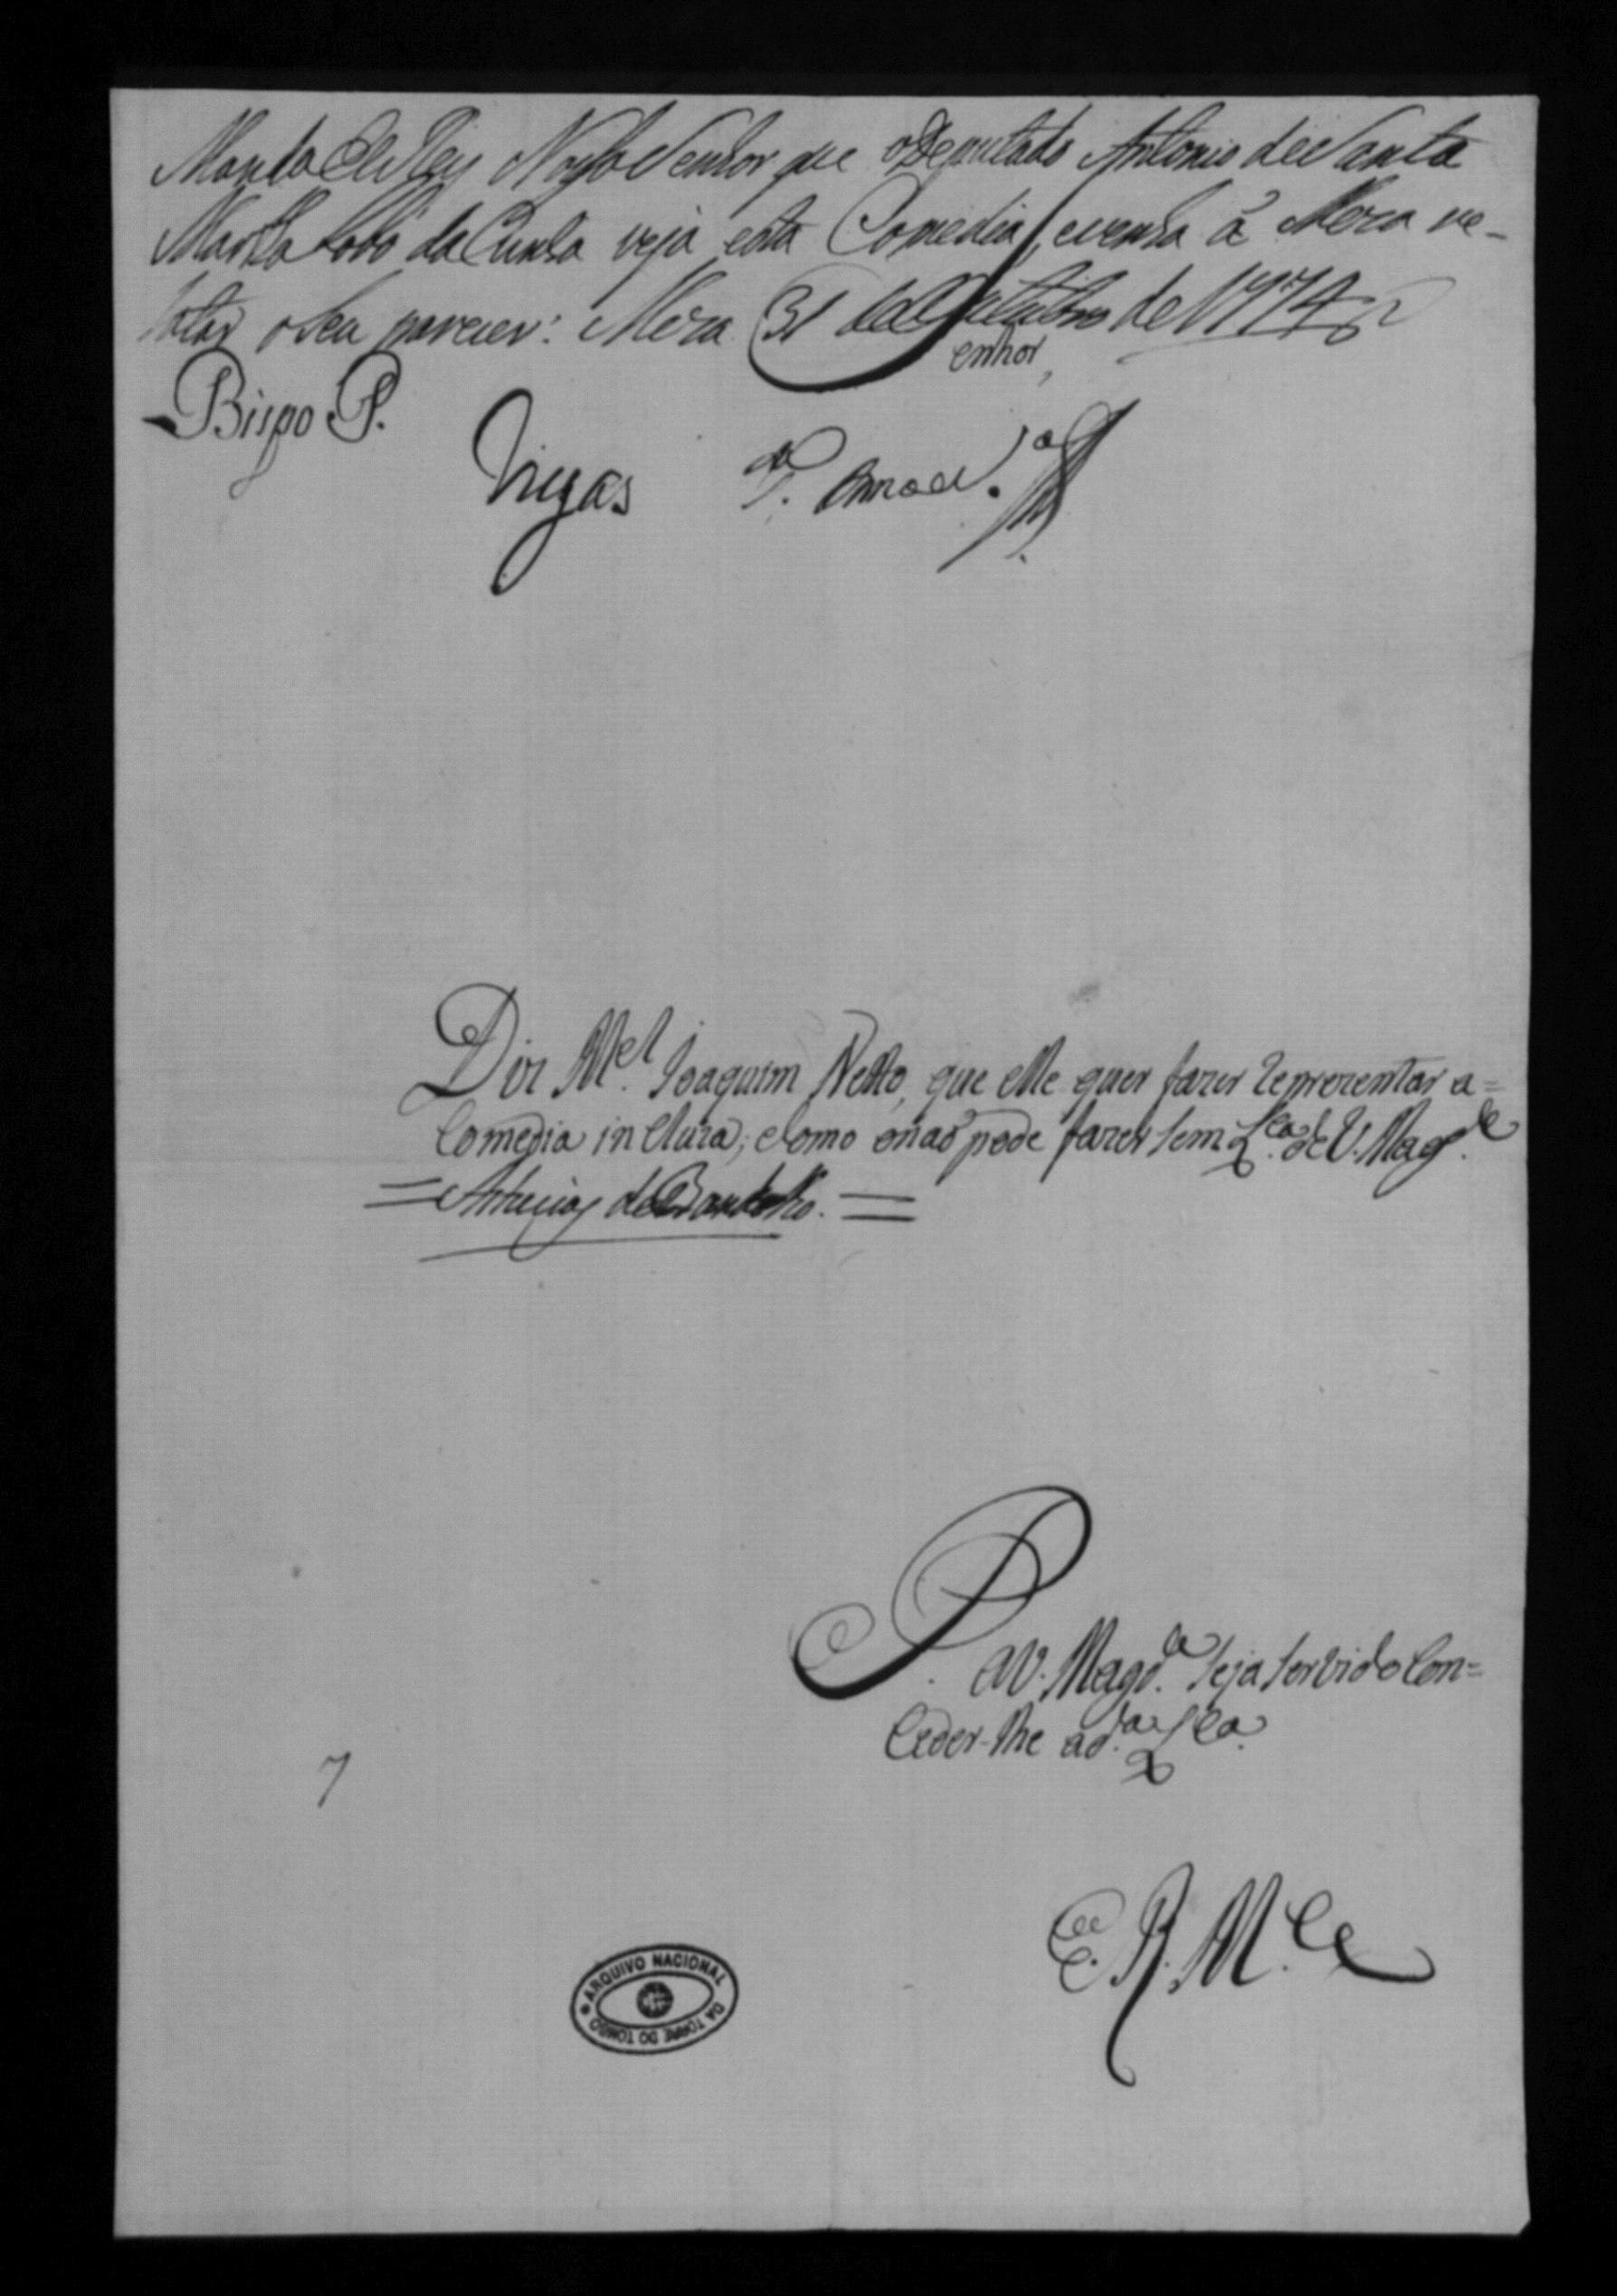 Manda ElRey Nosso Senhor que o Deputado Antonio de Santa
Martha Lobo da Cunha veja esta Comedia, e venha á Meza re-
latar o seu parecer: Meza 31 de Outubro de 1774
Senhor,
Bispo P.
Viegas
Diz M.el Joaquim Netto, que elle quer fazer reprezentar a=
Comedia incluza; e como o naõ pode fazer sem L.ca de V. Mag.de
=Astucias de Bandolho.=
P.
a V. Magd.e seja servido Con=
ceder-lhe a d.a L.ca
7
E. R. M.ce
ARQUIVO NACIONAL
DA TORRE DO TOMBO